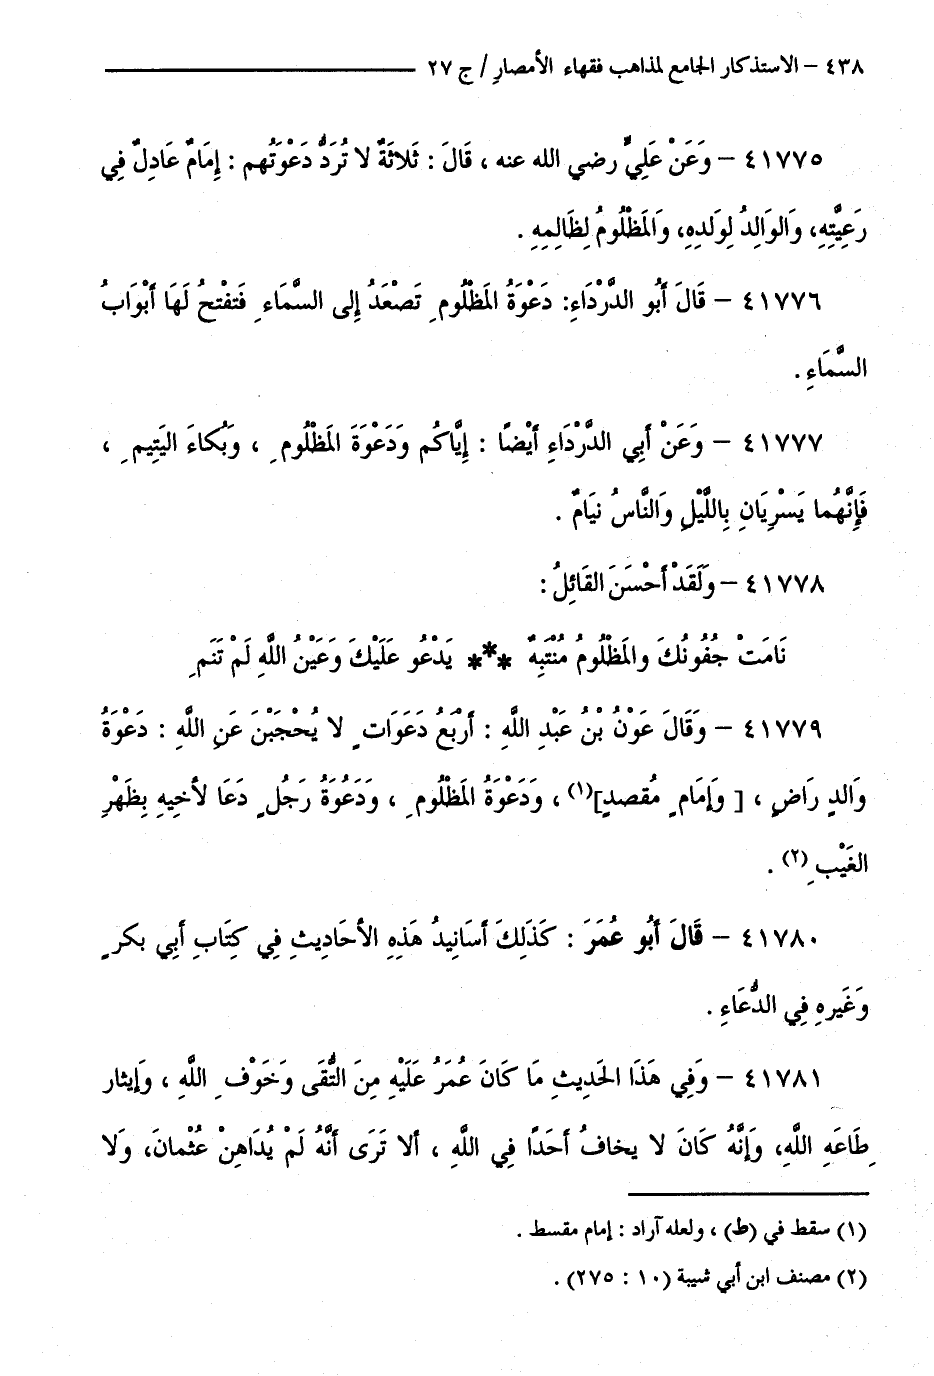 ٤٣٨ – الاستذكار الجامع لمذاهب فقهاء الأمصارِ / ج ٢٧
٤١٧٧٥ – وَعَنْ عَلِيٍّ رضي الله عنه ، قَالَ : ثَلاثَةٌ لا تُرَدُّ دَعْوَتُهم : إِمَامٌ عَادِلٌ فِي
رَعِيَّتِهِ، وَالوَالِدُ لِوَلدِهِ، وَالمَظْلُومُ لِظَالِمِهِ .
٤١٧٧٦ – قَالَ أَبُو الدَّرْدَاءِ: دَعْوَةُ المَظْلُومِ تَصْعَدُ إِلى السَّمَاءِ فَتفْتحُ لَهَا أَبْوَابُ
السَّمَاءِ .
٤١٧٧٧ – وَعَنْ أَبِي الدَّرْدَاءِ أَيْضًا : إِيَّاكُم وَدَعْوَةَ المَظْلُومِ ، وَبُكاءَ اليَتِيمِ ،
فَإِنَّهُما يَسْرِيَانِ بِاللَّيْلِ وَالنَّاسُ نيَامٌ .
٤١٧٧٨ – وَلَقَدْ أَحْسَنَ القَائِلُ :
نَامَتْ جُفُونُكَ والمَظْلُومُ مُنْتَبِهٌ *** يَدْعُو عَلَيْكَ وَعَيْنُ اللَّهِ لَمْ تَنَمِ
٤١٧٧٩ – وَقَالَ عَوْنُ بْنُ عَبْدِ اللَّهِ : أَرْبَعُ دَعَوَاتٍ لا يُحْجَبْنَ عَنِ اللَّهِ : دَعْوَةُ
وَالدٍ رَاضٍ ، [ وَإِمَامٍ مُقصدٍ](١) ، وَدَعْوَةُ المَظْلُومِ ، وَدَعْوَةُ رَجُلٍ دَعَا لأخِيهِ بِظَهْرِ
الغَيْبِ (٢) .
٤١٧٨٠ – قَالَ أَبُو عُمَرَ : كَذَلِكَ أَسَانِيدُ هَذِهِ الأحَادِيثِ فِي كِتَابِ أَبِي بكرٍ
وَغَيرِهِ فِي الدُّعَاءِ .
٤١٧٨١ – وَفِي هَذَا الحَدِيثِ مَا كَانَ عُمَرُ عَلَيْهِ مِنَ التُّقَى وَخَوْفِ اللَّهِ ، وَإيثار
طَاعَهِ اللَّهِ، وَإِنَّهُ كَانَ لا يخافُ أَحَدًا فِي اللَّهِ ، ألا تَرَى أَنَّهُ لَمْ يُدَاهِنْ عُثْمانَ، وَلا
(١) سقط في (ط) ، ولعله آراد : إمام مقسط .
(٢) مصنف ابن أبي شيبة (١٠ : ٢٧٥) .